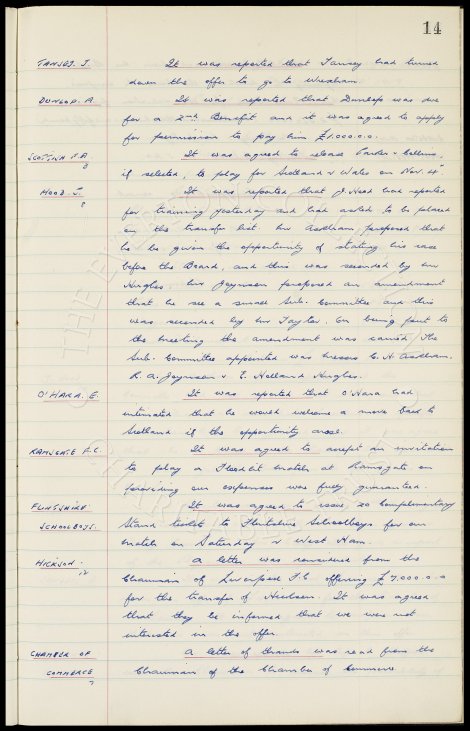 14
TANSEY. J. It was reported that Tansey had turned
down the offer to go to Wrexham.
DUNLOP. A. It was reported that Dunlop was due
for a 2nd Benefit and it was agreed to apply
for permission to pay him £1.000.0.0.
SCOTTISH F.A. It was agreed to release Parker & Collins,
if selected, to play for Scotland v Wales on Nov. 4
HOOD. J. It was reported that J. Hood had reported
for training yesterday and had asked to be placed
on the transfer list. Mr Askham proposed that
he be given the opportunity of stating his case
before the Board, and this was seconded by Mr
Hughes. Mr Joynson proposed an amendment
that he see a small Sub. Committee and this
was seconded by Mr Taylor. On being put to
the meeting the amendment was carried. The
Sub. Committee appointed was Messrs C. H. Askham.
R. A. Joynson & E. Holland Hughes.
O'HARA. E. It was reported that O'Hara had
intimated that he would welcome a move back to
Scotland if the opportunity arose.
RAMSGATE F.C. It was agreed to accept an invitation
to play a Floodlit match at Ramsgate on
providing our expenses was fully guaranteed.
FLINTSHIRE It was agreed to issue 20 Complimentary
SCHOOLBOYS. Stand tickets to Flintshire Schoolboys for our
match on Saturday v West Ham.
HICKSON. A letter was considered from the
Chairman of Liverpool F.C offering £7,000.0.0
for the transfer of Hickson. It was agreed
that they be informed that we were not
interested in the offer.
CHAMBER OF A letter of thanks was read from the
COMMERCE Chairman of the Chamber of Commerce